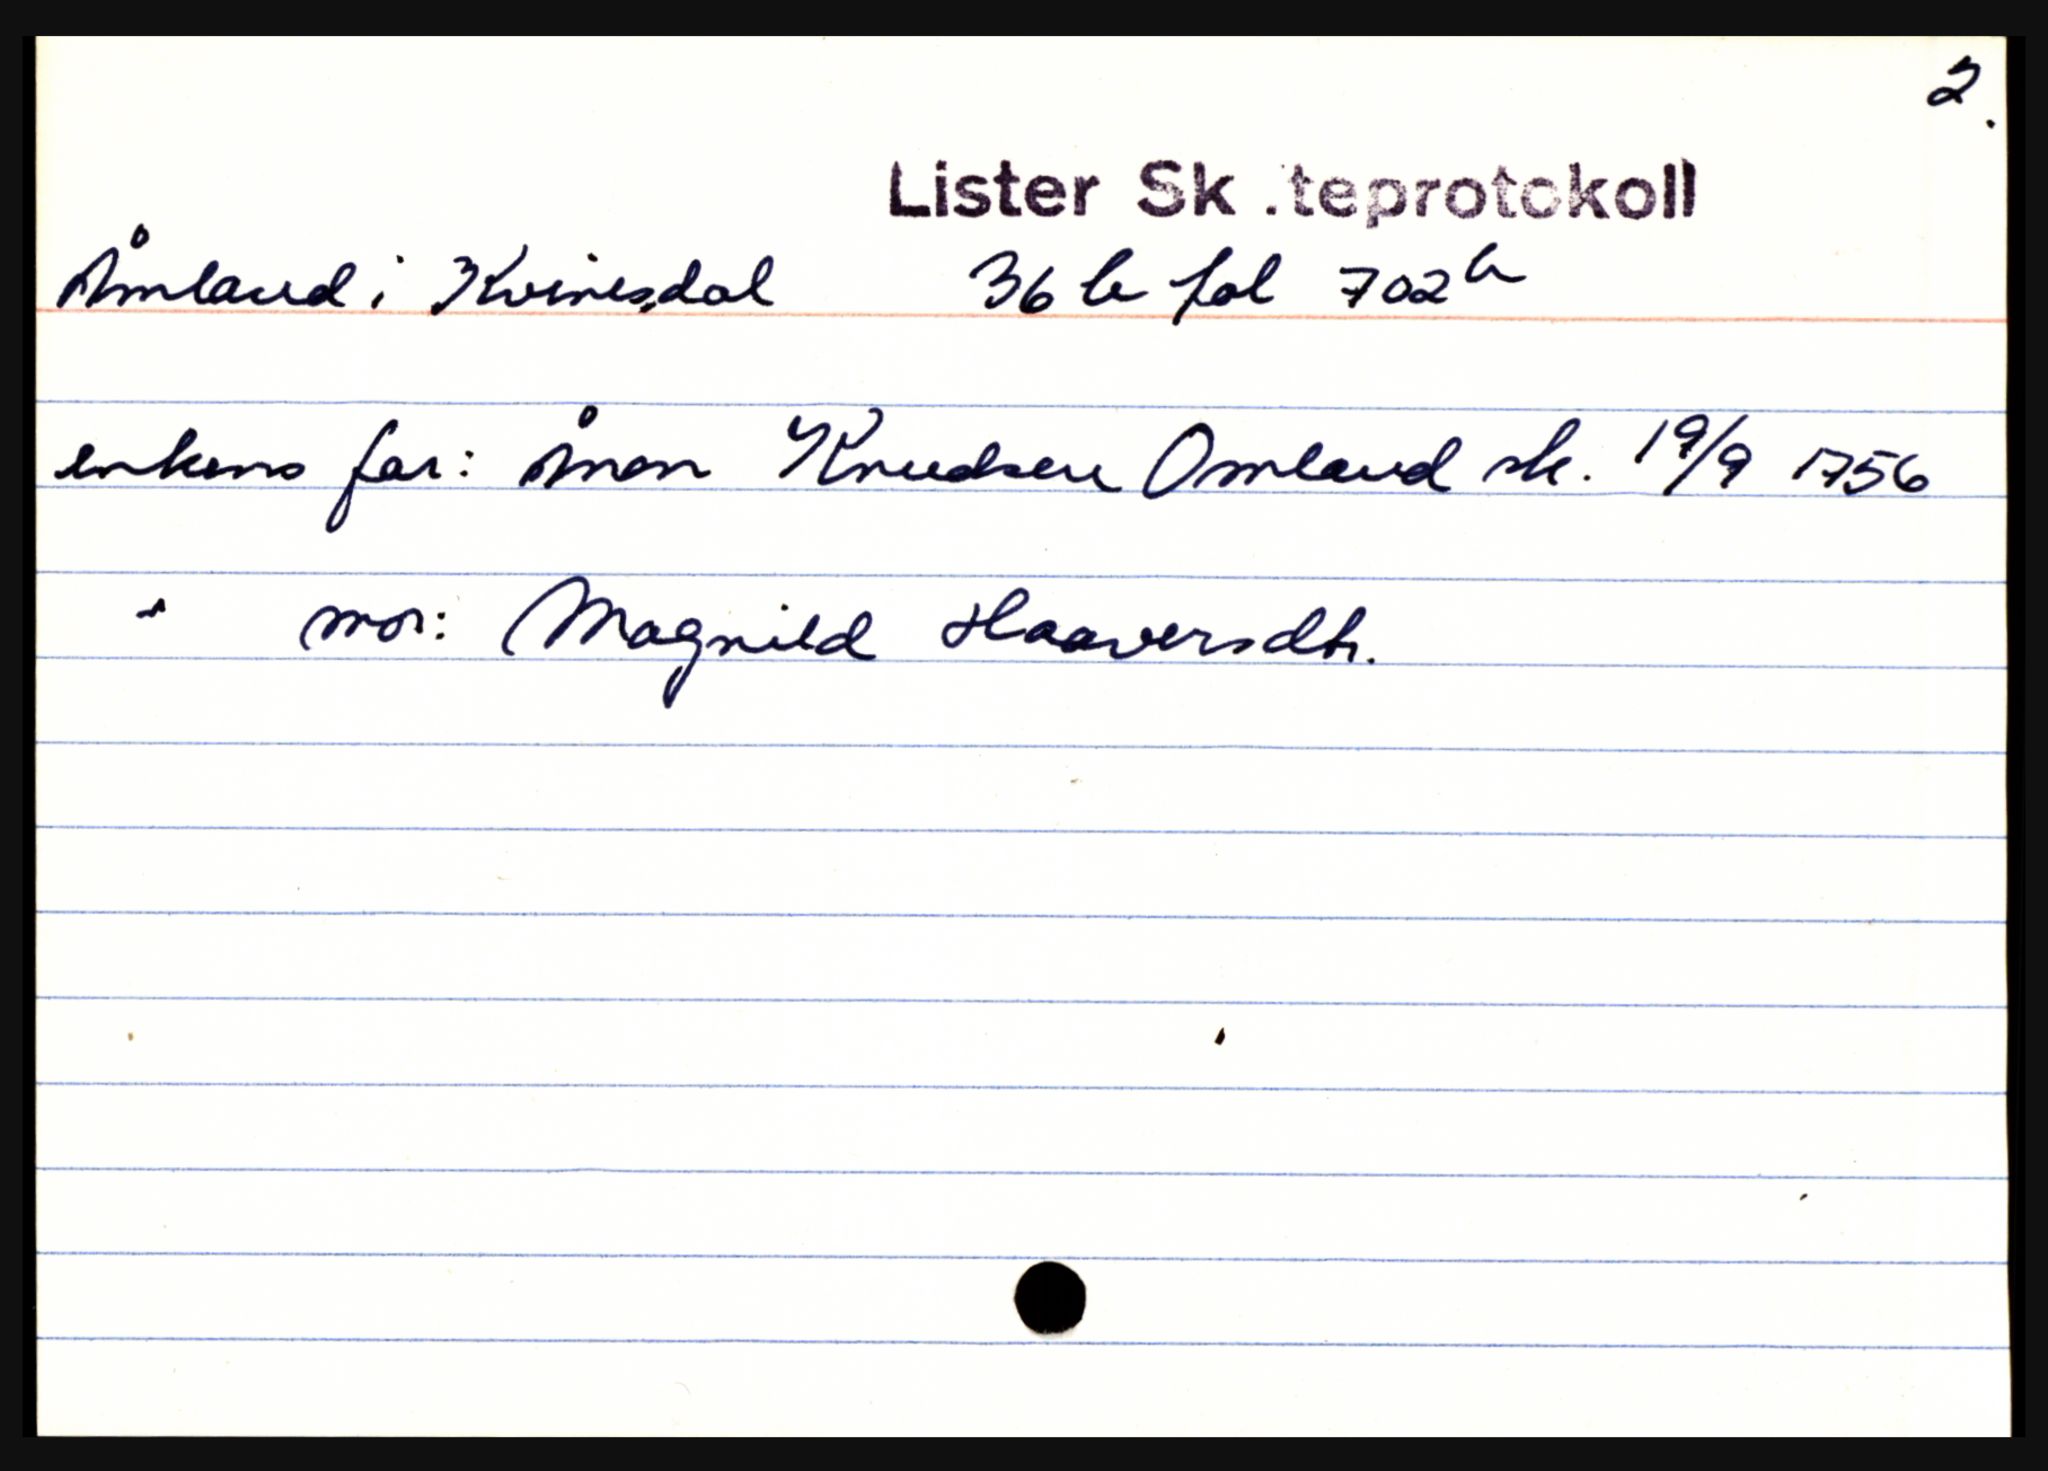 2.
Lister Sk .teprotokoll
Åmland i Kvinesdal 36 b fol 702 b
enkens far: Åmon Knudsen Omland sk. 19/9 1756
" mor: Magnild Haaversdtr.